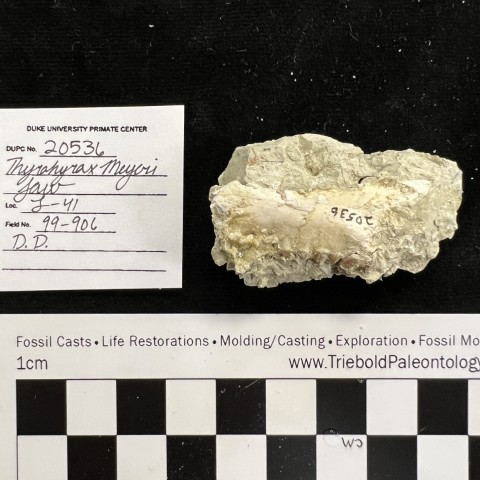 DUKE UNIVERSITY PRIMATE CENTER
DUPC No. 20536
Thyrohyrax Meyeri
Jaw
Loc. L-41
Field No. 99-906
D.D.
20536
Fossil Casts • Life Restorations • Molding/Casting • Exploration • Fossil Mo
1cm
www.TrieboldPaleontology
CM